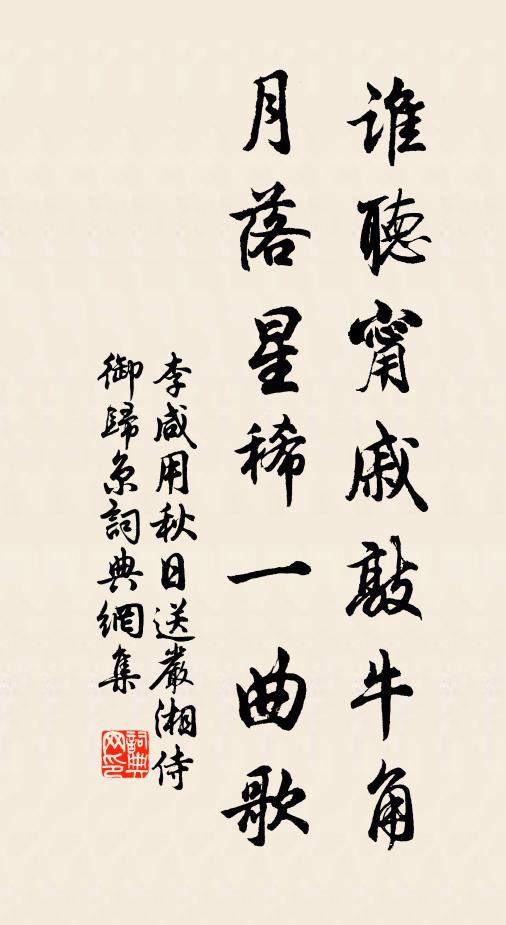 誰聽甯戚敲牛角
月落星稀一曲歌
李咸用秋日送嚴湘侍
御歸京詞典網集
詞典網印